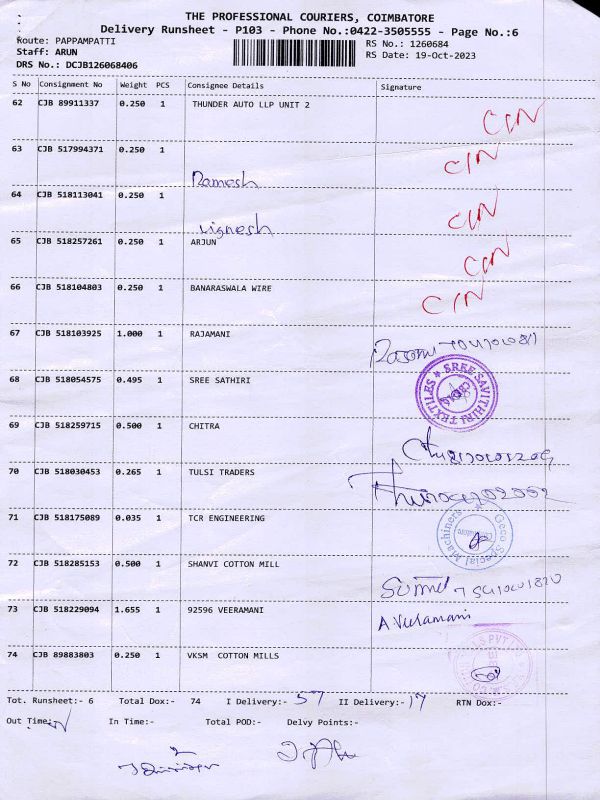 THE PROFESSIONAL COURIERS, COIMBATORE
Delivery Runsheet - P103 - Phone No.:0422-3505555 - Page No.:6
Route: PAPPAMPATTI
RS No.: 1260684
Staff: ARUN
RS Date: 19-Oct-2023
DRS No.: DCJB126068406
S No Consignment No Weight PCS Consignee Details Signature
62 CJB 89911337 0.250 1 THUNDER AUTO LLP UNIT 2
CIN
63 CJB 517994371 0.250 1
CIN
Ramesh
64 CJB 518113041 0.250 1
CIN
Vignesh
65 CJB 518257261 0.250 1 ARJUN
CIN
66 CJB 518104803 0.250 1 BANARASWALA WIRE
CIN
67 CJB 518103925 1.000 1 RAJAMANI
68 CJB 518054575 0.495 1 SREE SATHIRI
SREE SAVITHIRI TEXTILES
69 CJB 518259715 0.500 1 CHITRA
70 CJB 518030453 0.265 1 TULSI TRADERS
71 CJB 518175089 0.035 1 TCR ENGINEERING
Geco Special Machiners
72 CJB 518285153 0.500 1 SHANVI COTTON MILL
73 CJB 518229094 1.655 1 92596 VEERAMANI
A Veeramani
74 CJB 89883803 0.250 1 VKSM COTTON MILLS
Tot. Runsheet:- 6 Total Dox:- 74 I Delivery:- 57 II Delivery:- 17 RTN Dox:-
Out Time:- In Time:- Total POD:- Delvy Points:-